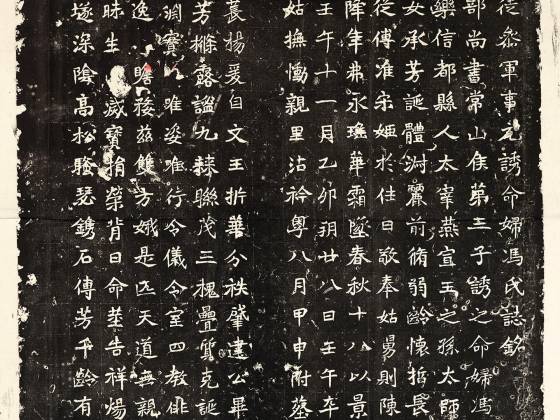 徒叅軍事元誘命婦馮氏誌銘
部尚書常山侯第三子誘之命婦馮
樂信都縣人太宰燕宣王之孫太師
女承芳誕體淵麗前脩弱齡懷哲長
從傅准宗姬於往日敬奉姑舅則陳
降年弗永璣華霜墜春秋十八以景
壬午十一月乙卯朔廿八日壬午卒
姑撫慟親里沾衿粵八月甲申附葬
萇楊爰自文王折華分秩肇建公畢
芳滌露謐九棘聯茂三槐疊賁克誕
淵寶唯姿唯行令儀令室四教俳
逸瞻茲雙方娥是匹天道無親
昧生威寶捐榮背日命塋告祥煬
深陰高松騷瑟鐫石傳芳千齡有